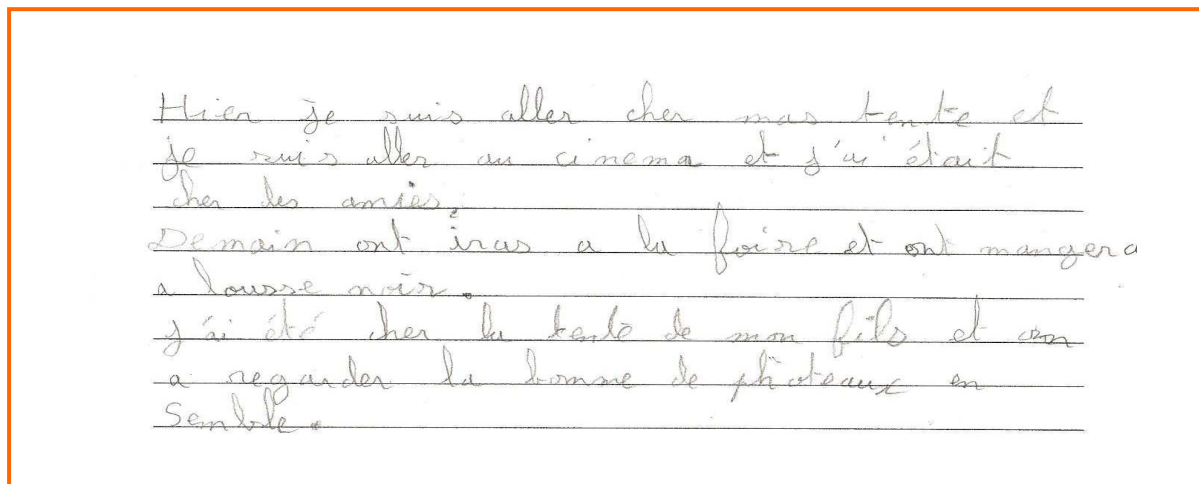 Hier je suis aller cher mas tente et
je suis aller au cinema et j'ai était
cher des amies.
Demain ont iras a la foire et ont mangera
a lousse noir.
j'ai été cher la tente de mon fils et on
a regarder la bomme de photeaux en
Semble.